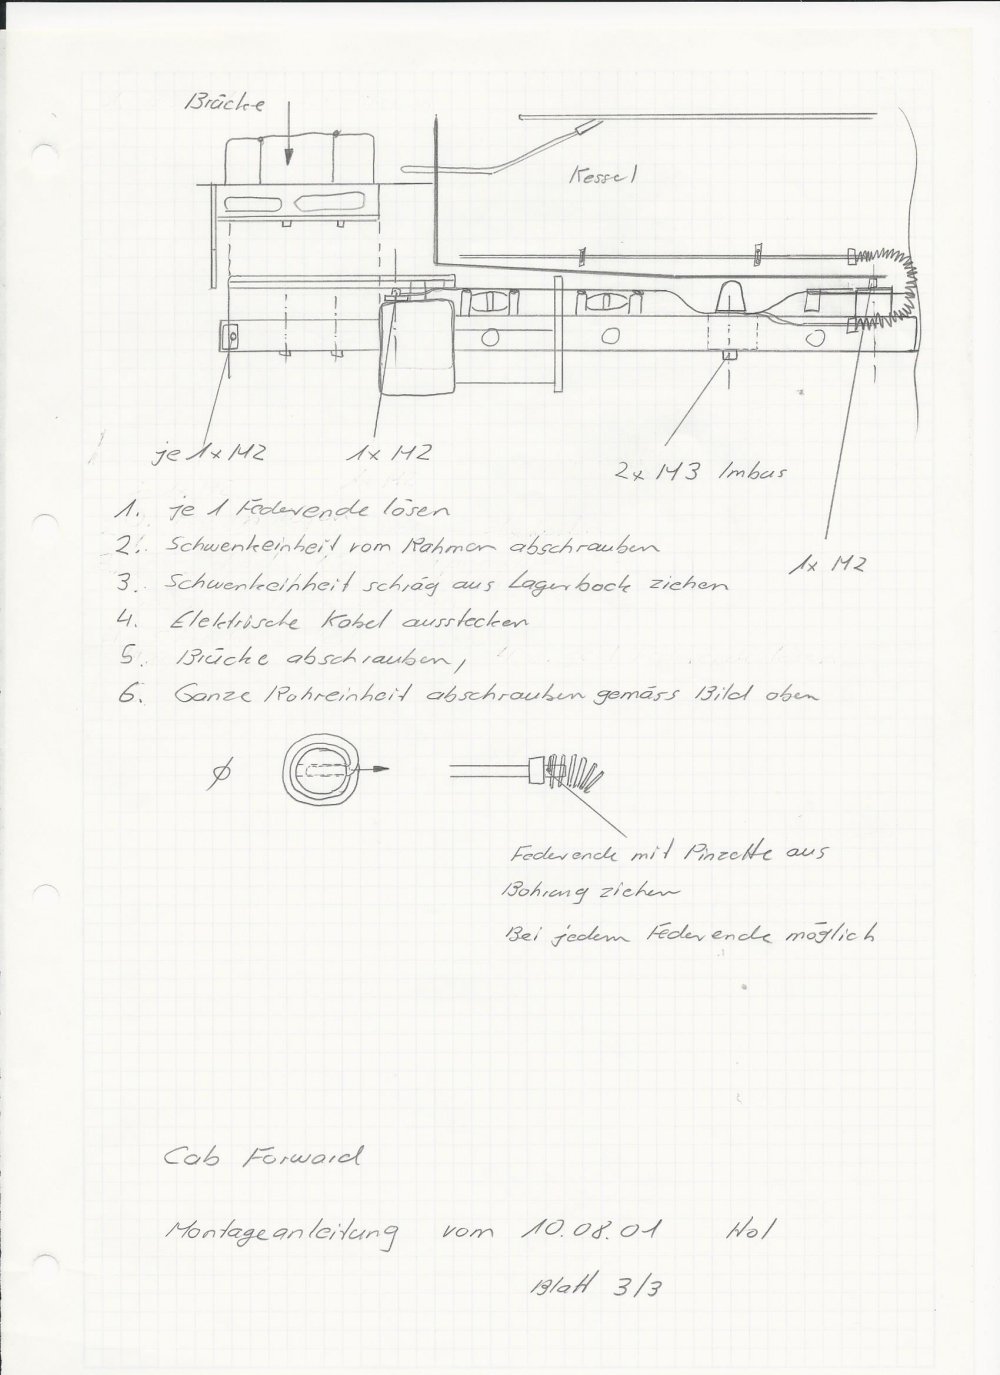 Brücke
Kessel
je 1x M2
1x M2
2x M3 Imbus
1x M2
1. je 1 Federende lösen
2. Schwenkeinheit vom Rahmen abschrauben
3. Schwenkeinheit schräg aus Lagerbock ziehen
4. Elektrische Kabel ausstecken
5. Brücke abschrauben,
6. Ganze Rohreinheit abschrauben gemäss Bild oben
Ø
Federende mit Pinzette aus
Bohrung ziehen
Bei jedem Federende möglich
Cab Forward
Montageanleitung vom 10.08.01 Hol
Blatt 3/3